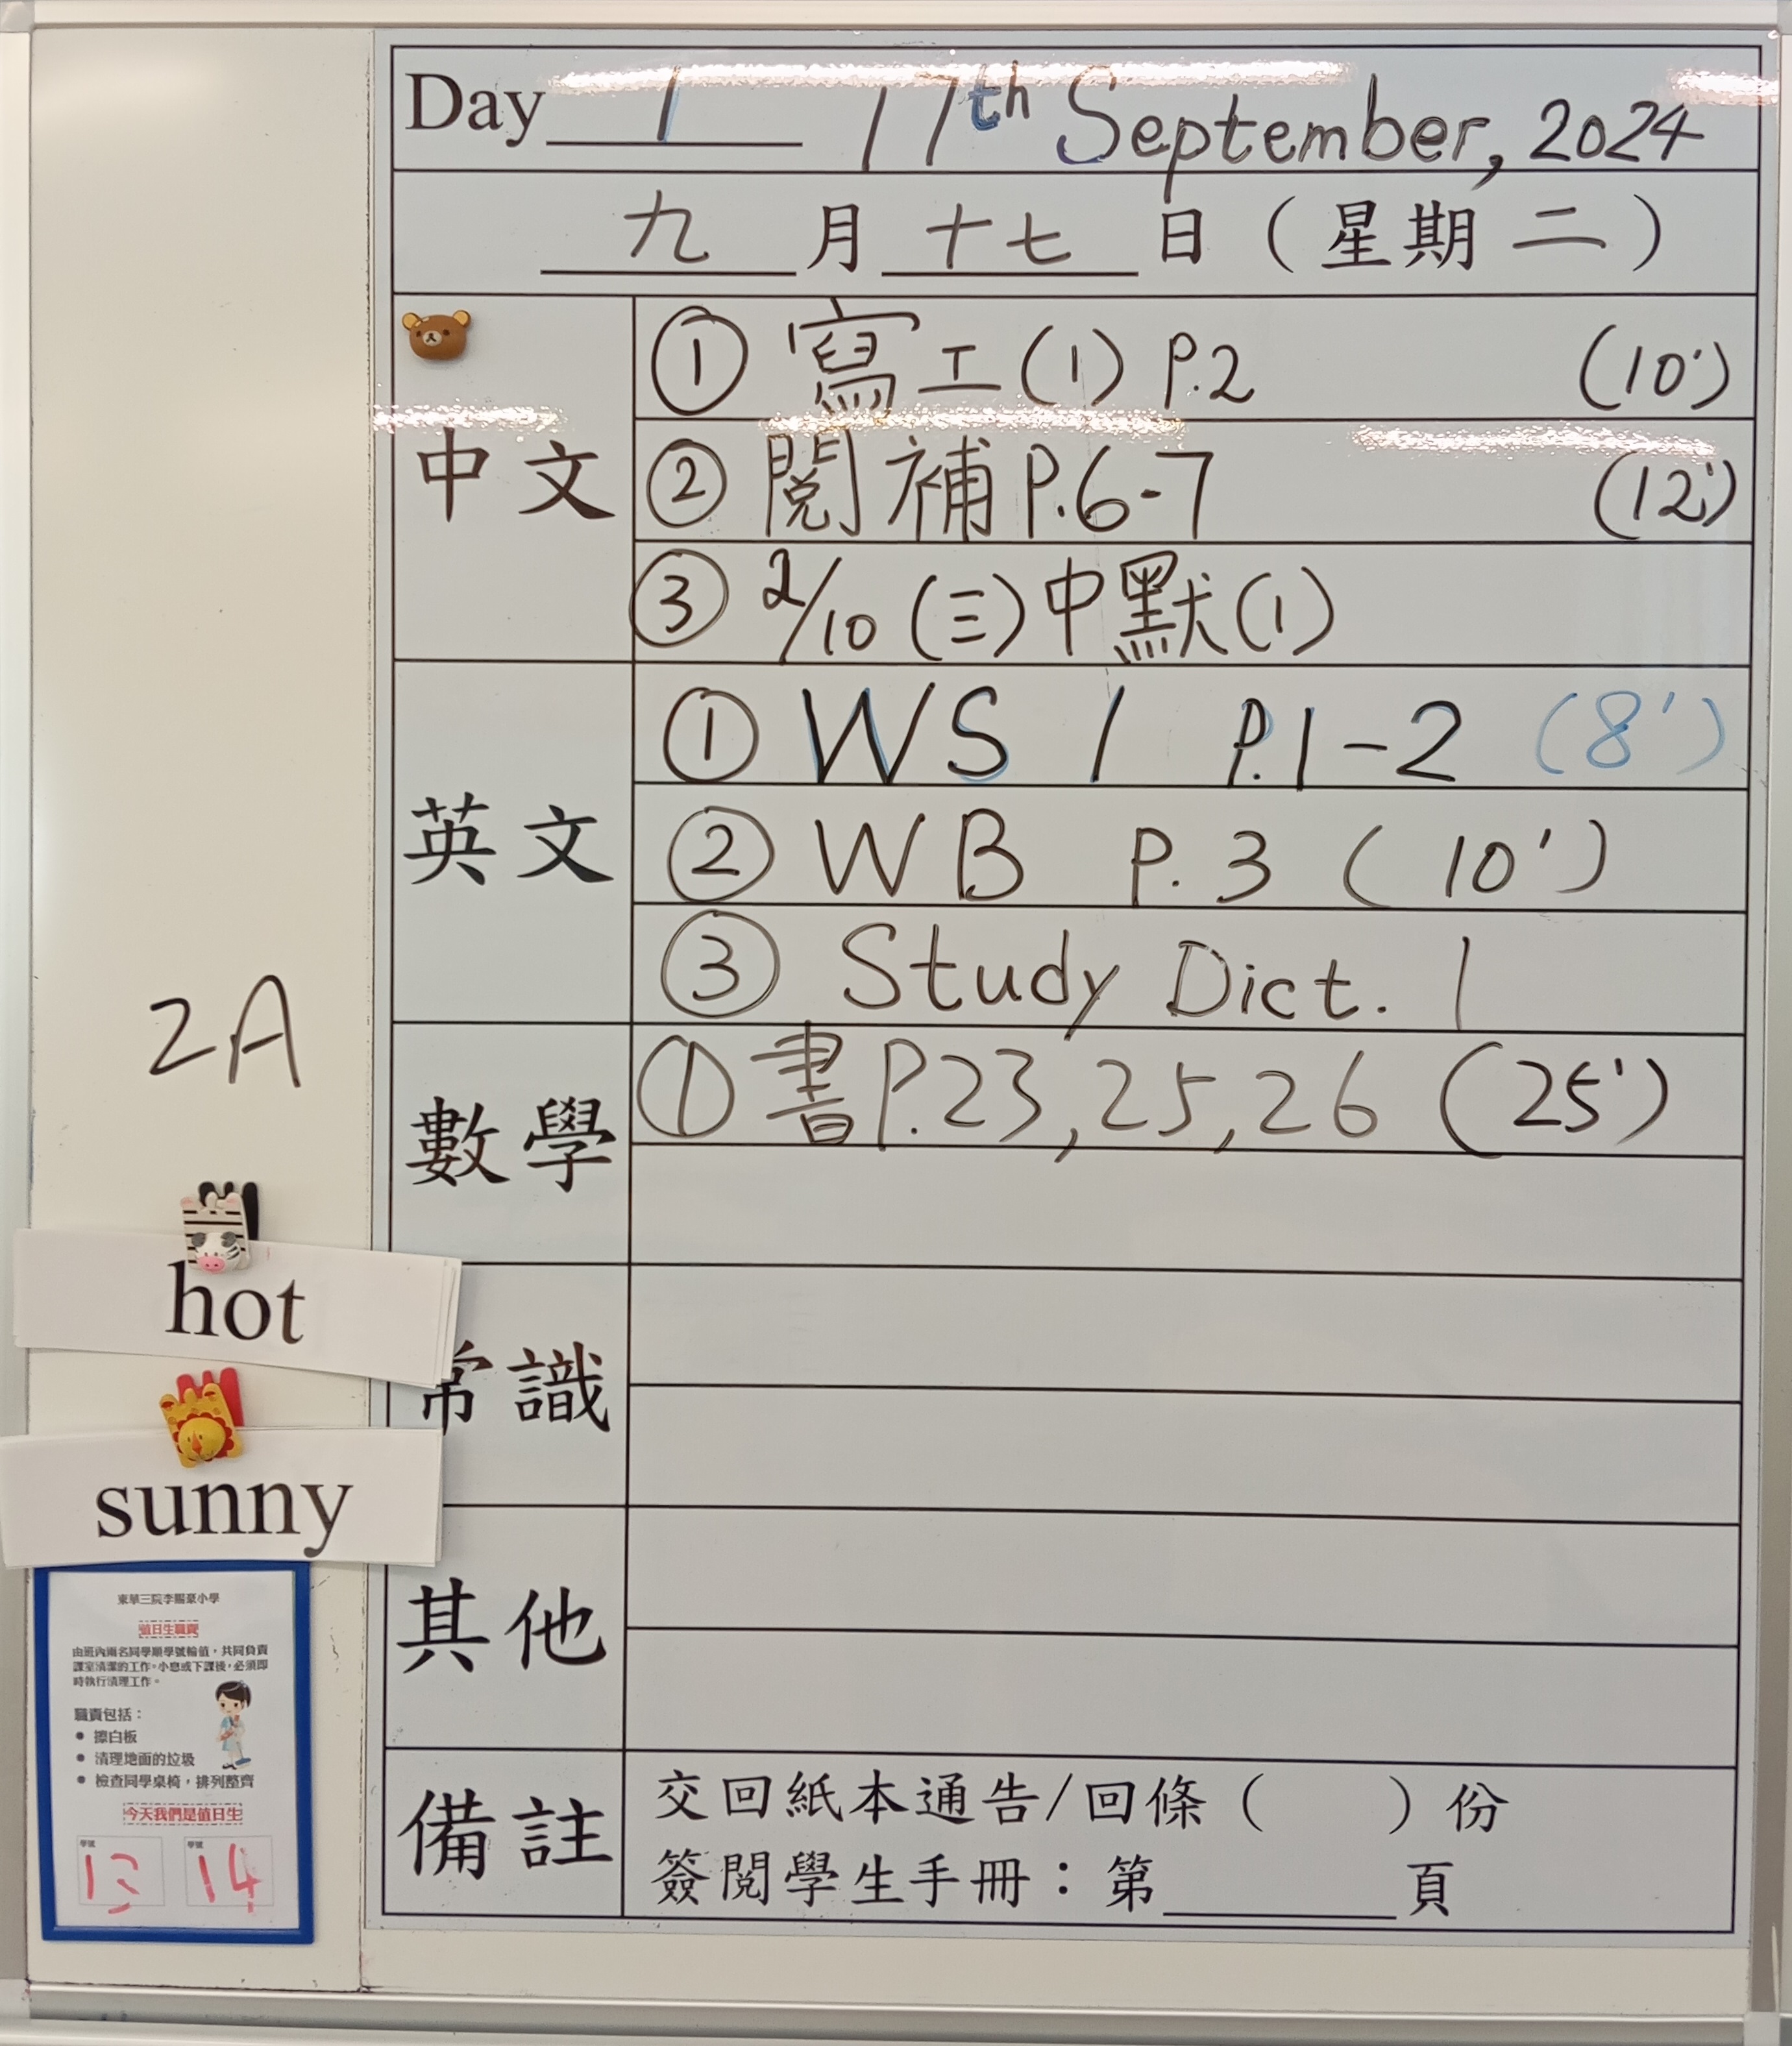 Day 1 17th September, 2024
九 月 十七 日 ( 星期 二 )
中文
① 寫工(1) P.2 (10')
② 閱補 P.6-7 (12')
③ 2/10 (三) 中默(1)
英文
① WS 1 P.1-2 (8')
② WB P.3 (10')
③ Study Dict. 1
數學
① 書 P.23, 25, 26 (25')
常識
其他
備註
交回紙本通告/回條 ( ) 份
簽閱學生手冊：第 頁
2A
hot
sunny
東華三院李賜豪小學
值日生職責
由班內兩名同學順學號輪值，共同負責
課室清潔的工作。小息或下課後，必須即
時執行清理工作。
職責包括：
● 擦白板
● 清理地面的垃圾
● 檢查同學桌椅，排列整齊
今天我們是值日生
學號 學號
13 14